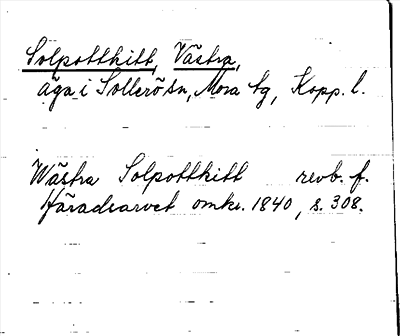 Solpotthitt, Västra,
äga i Sollerö sn, Mora tg, Kopp. l.
Wästra Solpotthitt revb. f.
Färadsarvet omkr. 1840, s. 308.